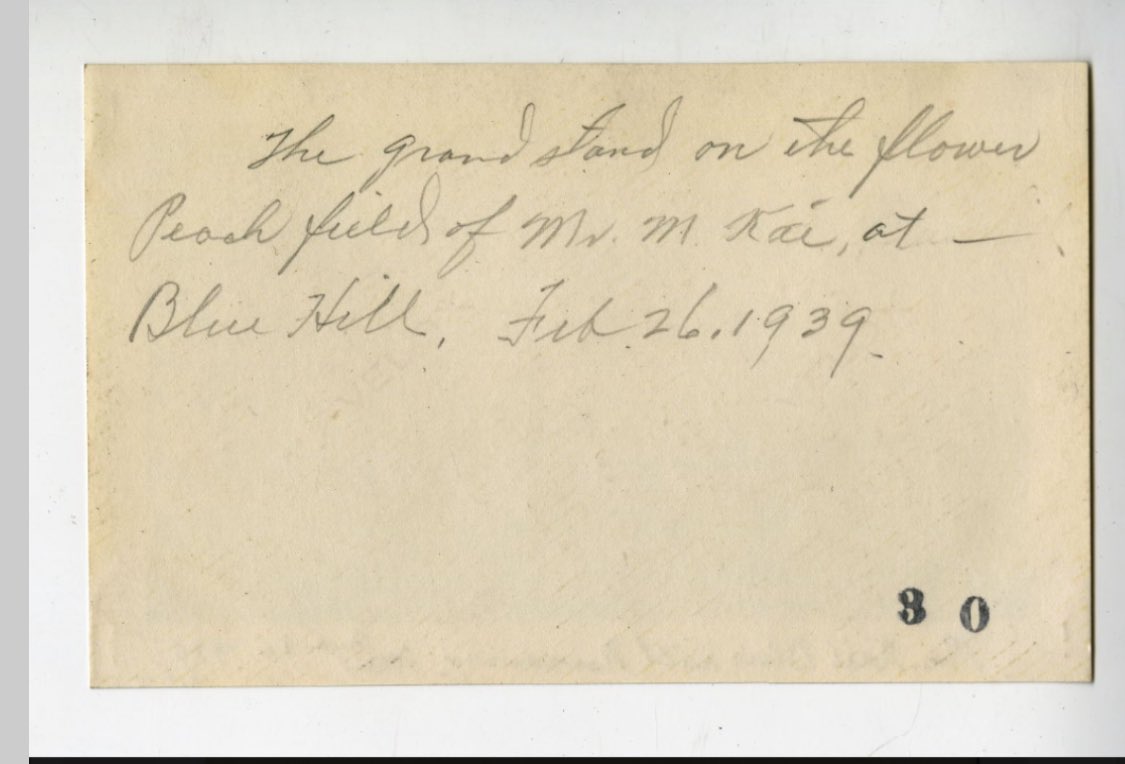 The grand stand on the flower
Peach field of Mr. M. Kai, at —
Blue Hill, Feb 26, 1939.
30